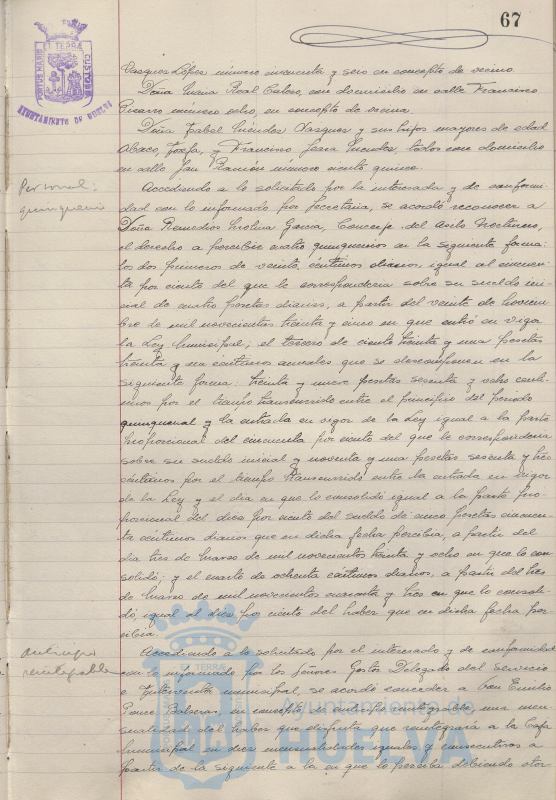 67
PORTUS MARIS ET TERRÆ CUSTODIA
AYUNTAMIENTO DE HUELVA
Vasquez López número cincuenta y seis en concepto de vecino.
Doña María Real Calero, con domicilio en calle Francisco
Pizarro número ocho, en concepto de vecina.
Doña Isabel Méndez Vasquez y sus hijos mayores de edad
Josefa, y Francisco Jesús Méndez, todos con domicilio
en calle San Ramón número ciento quince.
Personal:
quinquenio
Accediendo a lo solicitado por la interesada y de conformi-
dad con lo informado por Secretaría, se acordó reconocer a
Doña Remedios Molina Garcia, Conserje del Asilo Nocturno,
el derecho a percibir cuatro quinquenios en la siguiente forma:
los dos primeros de veinte céntimos diarios, igual al cincuen-
ta por ciento del que le correspondería sobre su sueldo ini-
cial de cuatro pesetas diarias, a partir del veinte de Noviem-
bre de mil novecientos treinta y cinco en que entró en vigor
la Ley Municipal; el tercero de ciento treinta y una pesetas
treinta y un céntimos anuales que se descomponen en la
siguiente forma: treinta y nueve pesetas sesenta y ocho cénti-
mos por el tiempo transcurrido entre el principio del periodo
quinquenal y la entrada en vigor de la Ley igual a la parte
proporcional del cincuenta por ciento del que le correspondería
sobre su sueldo inicial y noventa y una pesetas sesenta y tres
céntimos por el tiempo transcurrido entre la entrada en vigor
de la Ley y el día en que lo consolidó igual a la parte pro-
porcional del diez por ciento del sueldo de cinco pesetas cincuen-
ta céntimos diarios que en dicha fecha percibía, a partir del
día tres de Marzo de mil novecientos treinta y ocho en que lo con-
solidó; y el cuarto de ochenta céntimos diarios, a partir del tres
de Marzo de mil novecientos cuarenta y tres en que lo consoli-
dó, igual al diez por ciento del haber que en dicha fecha per-
cibía.
Anticipo
reintegrable
Accediendo a lo solicitado por el interesado y de conformidad
con lo informado por los Señores Gestor Delegado del Servicio
e Interventor municipal, se acordó conceder a Don Emilio
Ponce en concepto de anticipo reintegrable, una men-
sualidad del haber que disfruta que reintegrará a la Caja
Municipal en diez mensualidades iguales y consecutivas a
partir de la siguiente a la en que lo perciba debiendo otor-
Ayuntamiento de
HUELVA